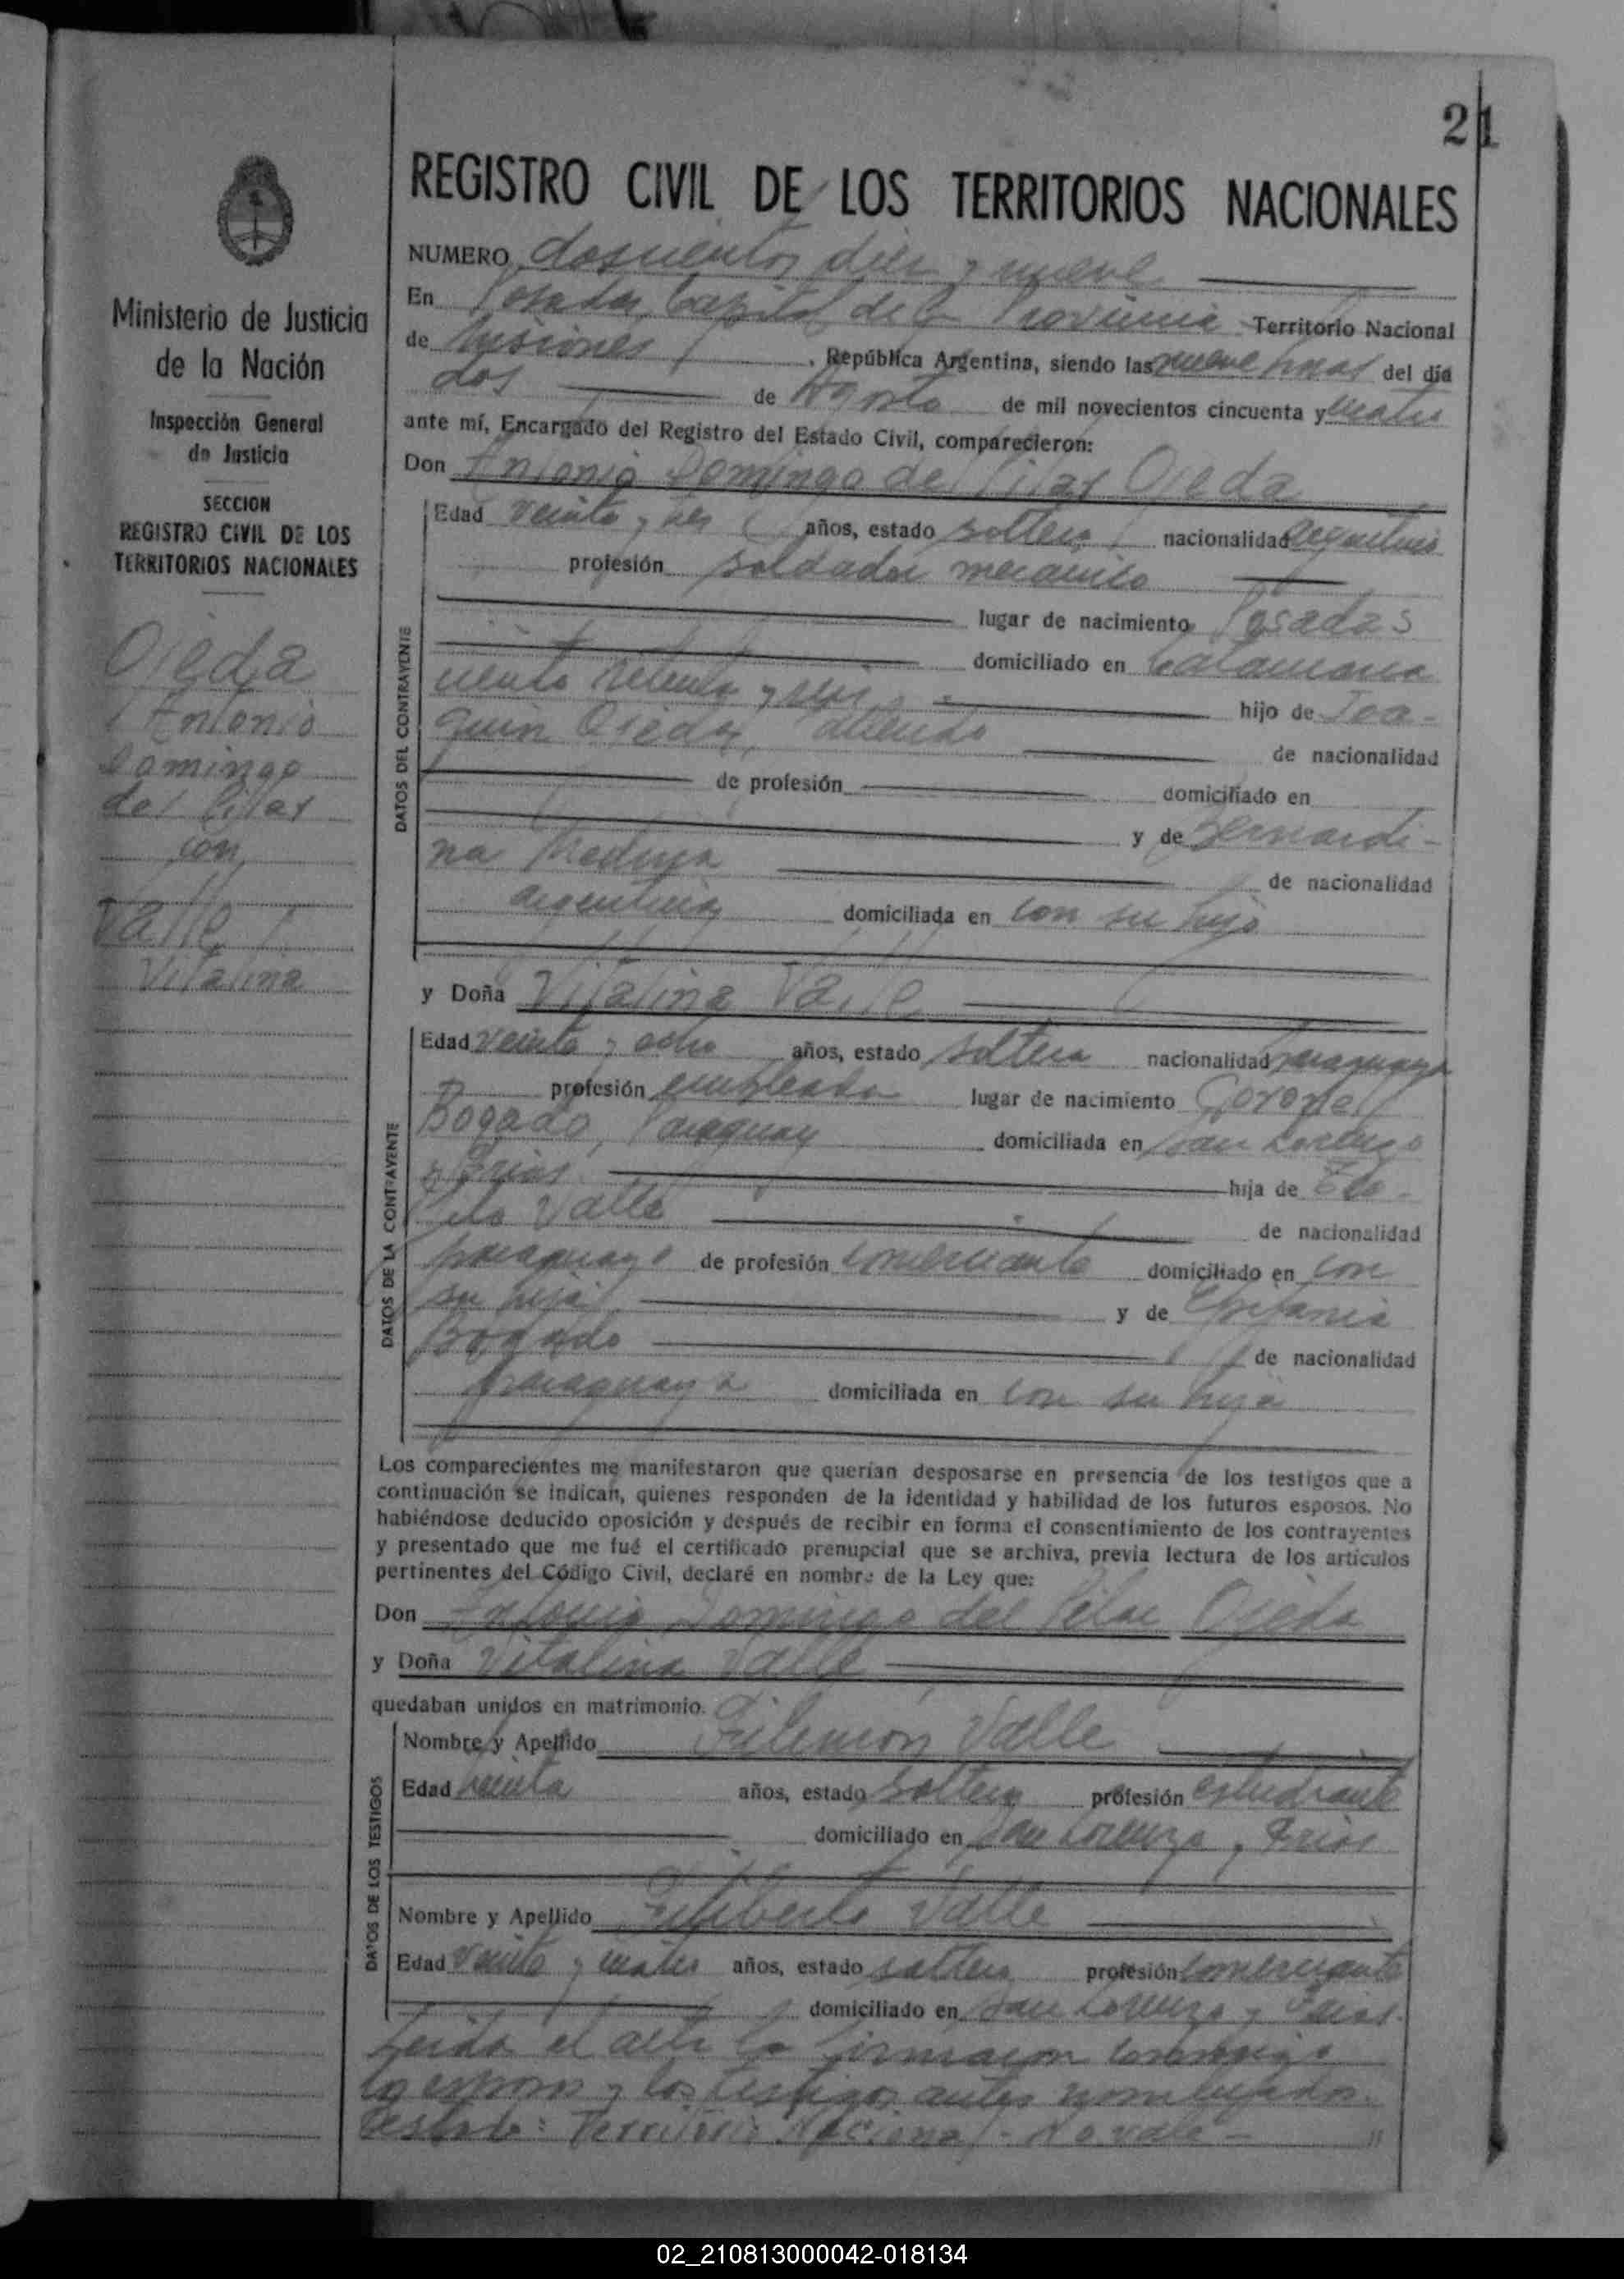 21
REGISTRO CIVIL DE LOS TERRITORIOS NACIONALES
Ministerio de Justicia
de la Nación
Inspección General
de Justicia
SECCION
REGISTRO CIVIL DE LOS
TERRITORIOS NACIONALES
Ojeda
Antonio
Domingo
del Pilar
con
Valle
Vitalina
NUMERO doscientos diez y nueve
En Posadas, Capital de la Provincia Territorio Nacional
de Misiones, República Argentina, siendo las nueve horas del día
dos de Agosto de mil novecientos cincuenta y cuatro
ante mí, Encargado del Registro del Estado Civil, comparecieron:
Don Antonio Domingo del Pilar Ojeda
DATOS DEL CONTRAYENTE
Edad veinte y tres años, estado soltero nacionalidad argentino
profesión soldador mecanico
lugar de nacimiento Posadas
domiciliado en Catamarca
ciento setenta y seis hijo de Joa-
quin Ojeda, de nacionalidad
de profesión domiciliado en
y de Bernardi-
na Medina de nacionalidad
argentina domiciliada en con su hijo
y Doña Vitalina Valle
DATOS DE LA CONTRAYENTE
Edad veinte y ocho años, estado soltera nacionalidad paraguaya
profesión empleada lugar de nacimiento Coronel
Bogado, Paraguay domiciliada en San Lorenzo
y Frias hija de
Valle de nacionalidad
paraguayo de profesión comerciante domiciliado en con
su hija y de Epifania
Bogado de nacionalidad
paraguaya domiciliada en con su hija
Los comparecientes me manifestaron que querían desposarse en presencia de los testigos que a
continuación se indican, quienes responden de la identidad y habilidad de los futuros esposos. No
habiéndose deducido oposición y después de recibir en forma el consentimiento de los contrayentes
y presentado que me fué el certificado prenupcial que se archiva, previa lectura de los artículos
pertinentes del Código Civil, declaré en nombre de la Ley que:
Don Antonio Domingo del Pilar Ojeda
y Doña Vitalina Valle
quedaban unidos en matrimonio.
DATOS DE LOS TESTIGOS
Nombre y Apellido Filemón Valle
Edad treinta años, estado soltero profesión estudiante
domiciliado en San Lorenzo y Frias
Nombre y Apellido Filiberto Valle
Edad veinte y cuatro años, estado soltero profesión comerciante
domiciliado en San Lorenzo y Frias.
Leida el acta la firmaron conmigo
los esposos y los testigos antes nombrados.
Testado: Territorio Nacional - No vale -
02_210813000042-018134